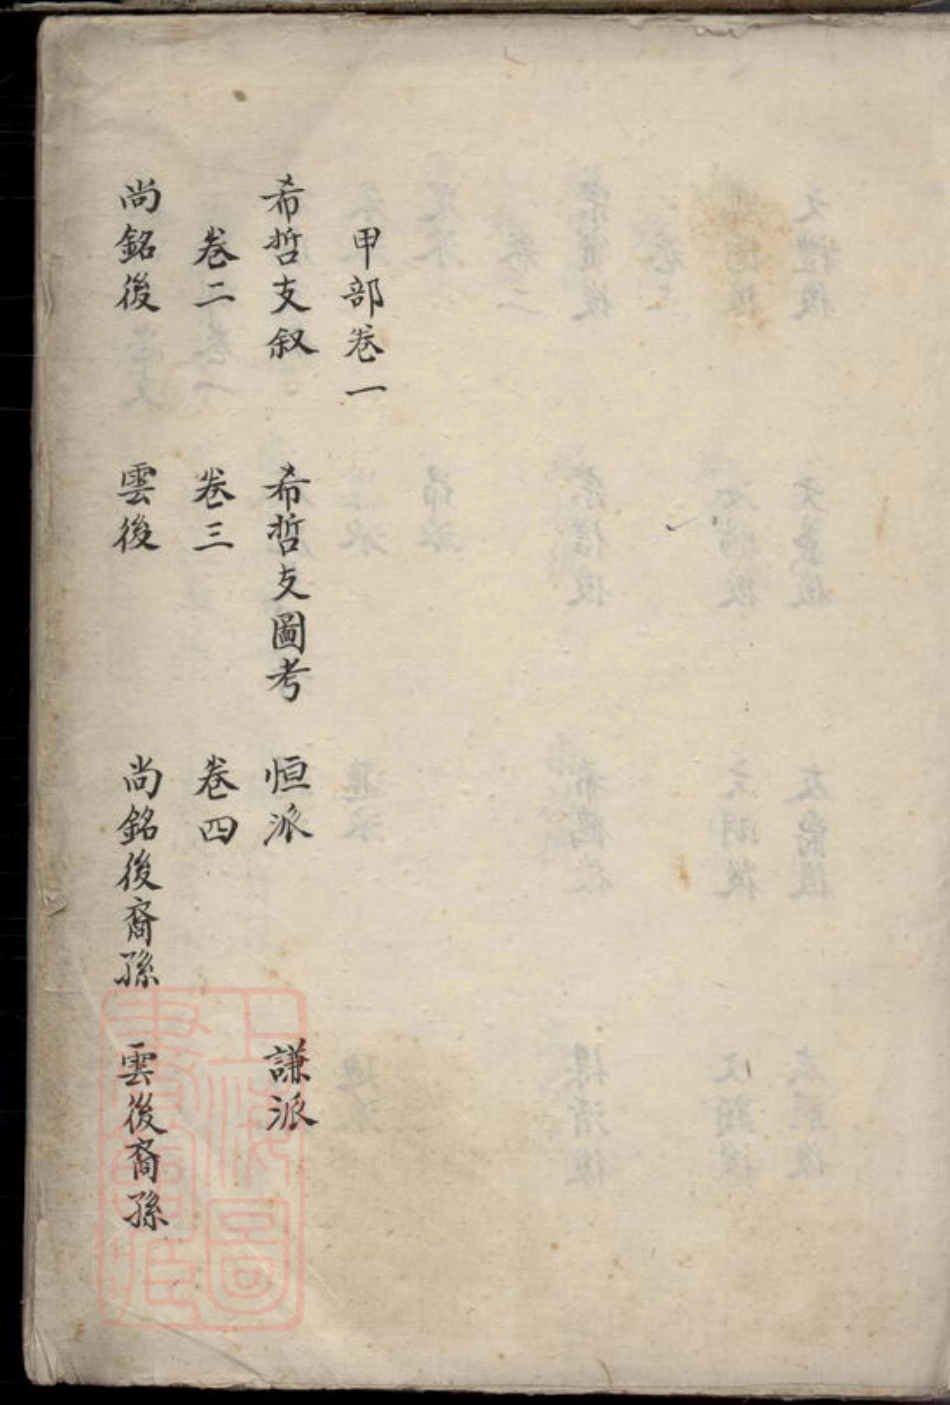 甲部卷一
希哲支叙 希哲支圖考 恒派 謙派
卷二 卷三 卷四
尚銘後 雲後 尚銘後裔孫 雲後裔孫
上海圖書館藏